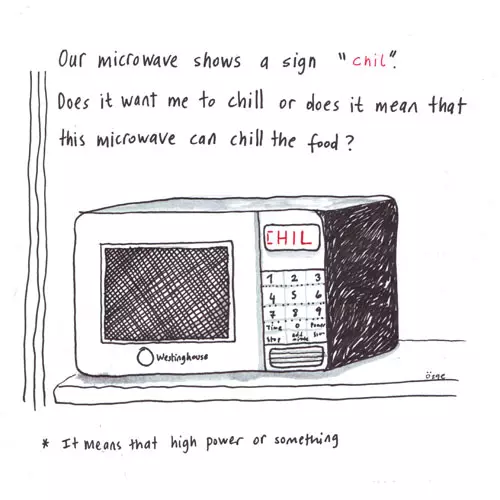 Our microwave shows a sign "chil".
Does it want me to chill or does it mean that
this microwave can chill the food?
CHIL
1 2 3
4 5 6
7 8 9
Time 0 Power
Stop add minute
Westinghouse
özge
* It means that high power or something